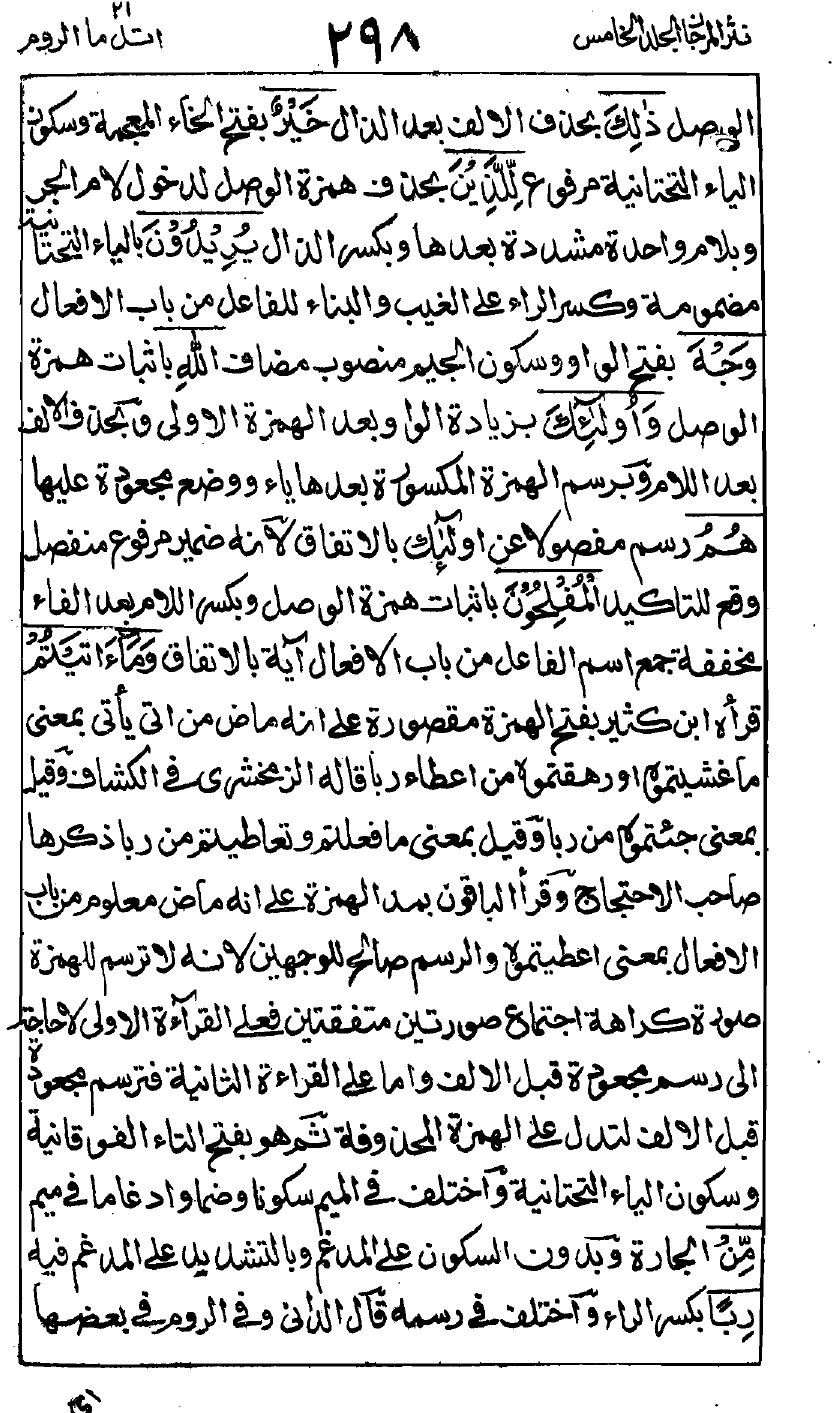 نثر المرجان المجلد الخامس ٢٩٨ اتل ما الروم ٢١
الوصل ذٰلِكَ بحذف الالف بعد الذال خَيْرٌ بفتح الخاء المعجمة وسكون
الياء التحتانية مرفوع لِّلَّذِيْنَ بحذف همزة الوصل لدخول لام الجر
وبلام واحدة مشددة بعدها وبكسر الذال يُرِيْدُوْنَ بالياء التحتانية
مضمومة وكسر الراء على الغيب والبناء للفاعل من باب الافعال
وَجْهَ بفتح الواو وسكون الجيم منصوب مضاف اللّٰهِ باثبات همزة
الوصل وَاُولٰٓئِكَ بزيادة الواو بعد الهمزة الاولى وبحذف الالف
بعد اللام وبرسم الهمزة المكسورة بعدها ياء ووضع مجعودة عليها
هُمُ رسم مفصولا عن اولٰٓئك بالاتفاق لانه ضمير مرفوع منفصل
وقع للتاكيد الْمُفْلِحُوْنَ باثبات همزة الوصل وبكسر اللام بعد الفاء
مخففة جمع اسم الفاعل من باب الافعال آية بالاتفاق وَمَآءَاتَيْتُمْ
قرأه ابن كثير بفتح الهمزة مقصورة على انه ماض من اتى يأتى بمعنى
ما غشيتموه او رهقتموه من اعطاء ربا قاله الزمخشرى فى الكشاف وقيل
بمعنى جئتموه من ربا وقيل بمعنى ما فعلتم وتعاطيتم من ربا ذكرها
صاحب الاحتجاج وقرأ الباقون بمد الهمزة على انه ماض معلوم من باب
الافعال بمعنى اعطيتموه والرسم صالح للوجهين لانه لا ترسم للهمزة
صورة كراهة اجتماع صورتين متفقتين فعلى القرآءة الاولى لا حاجة
الى رسم مجعودة قبل الالف واما على القراءة الثانية فترسم مجعودة
قبل الالف لتدل على الهمزة المحذوفة ثم هو بفتح التاء الفوقانية
وسكون الياء التحتانية واختلف فى الميم سكونا وضما وادغاما فى ميم
مِّنْ الجارة وبدون السكون على المدغم وبالتشديد على المدغم فيه
رِبًا بكسر الراء واختلف فى رسمه قال الدانى وفى الروم فى بعضها